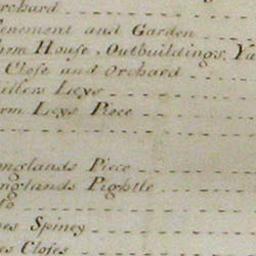 rchard
enement and Garden
House, Outbuildings, Ya
Close and Orchard
Leys
rm Leys Piece
nglands Piece
nglands Pightle
es Spiney
es Closes